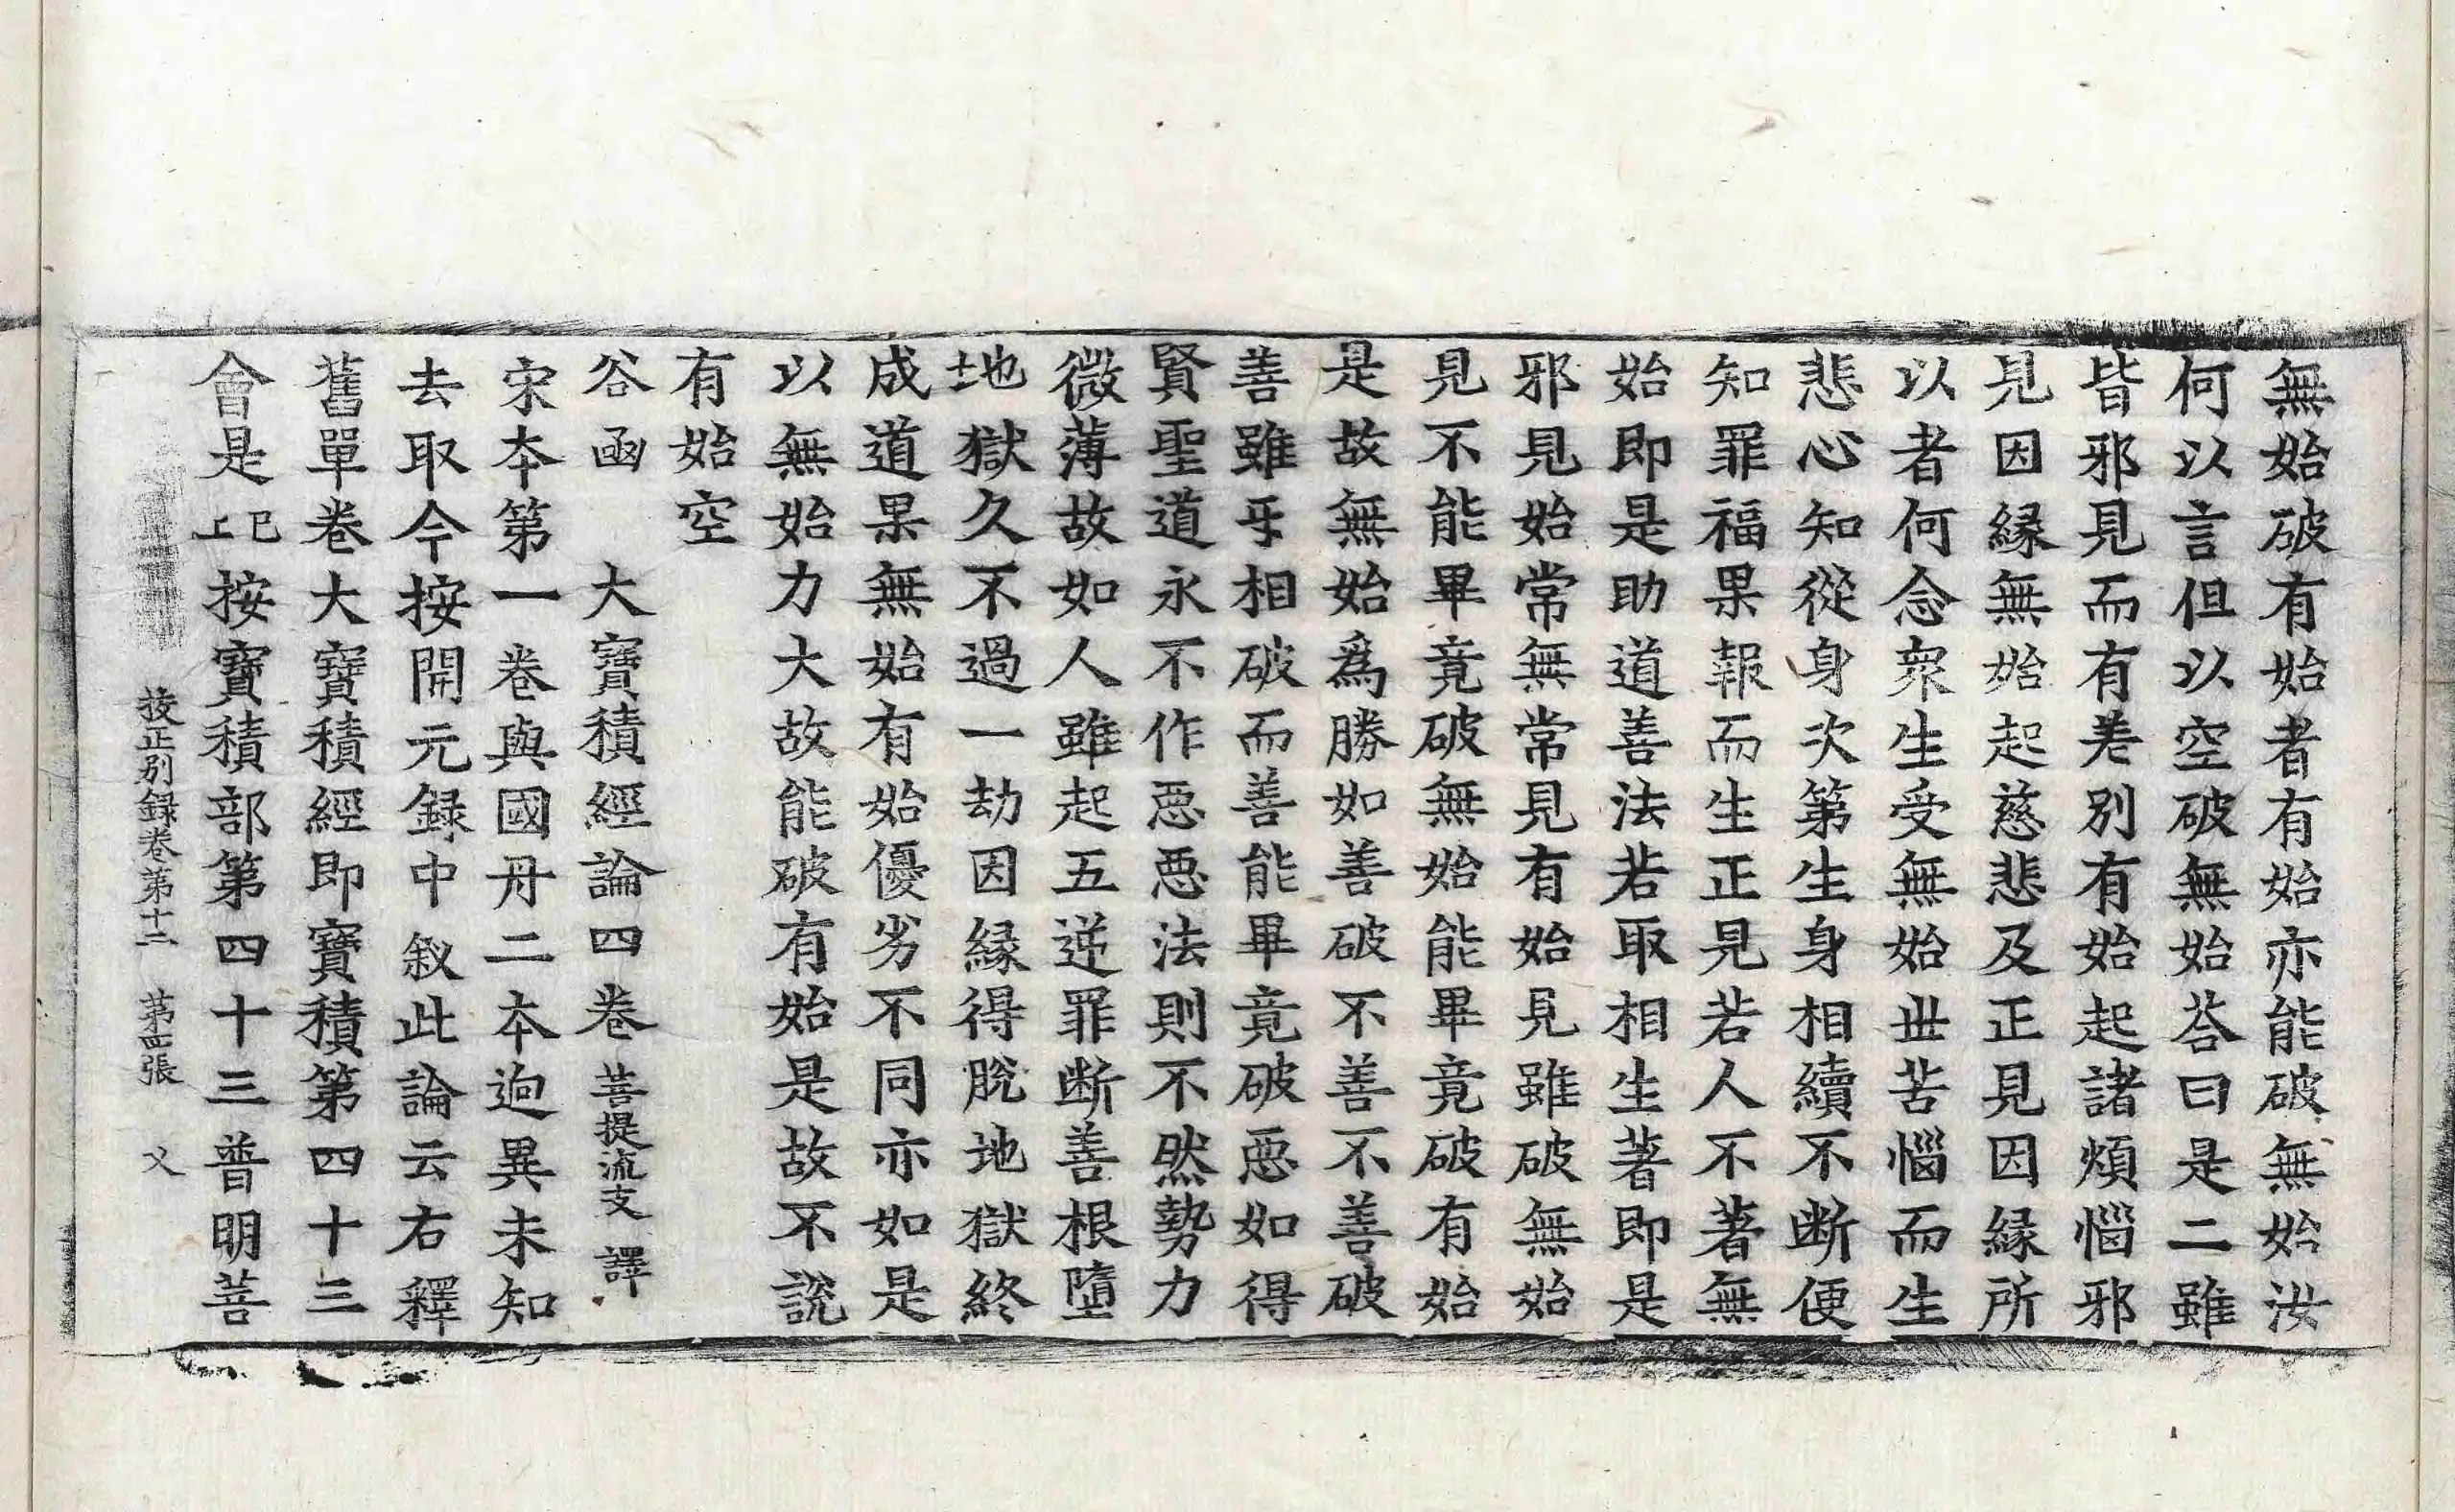 無始破有始者有始亦能破無始汝
何以言但以空破無始荅曰是二雖
皆邪見而有差別有始起諸煩惱邪
見因縁無始起慈悲及正見因縁所
以者何念衆生受無始丗苦惱而生
悲心知從身次第生身相續不断便
知罪福果報而生正見若人不著無
始即是助道善法若取相生著即是
邪見始常無常見有始見雖破無始
見不能畢竟破無始能畢竟破有始
是故無始爲勝如善破不善不善破
善雖乎相破而善能畢竟破惡如得
賢聖道永不作惡惡法則不然勢力
微薄故如人雖起五逆罪断善根墮
地獄久不過一劫因縁得脫地獄終
成道果無始有始優劣不同亦如是
以無始力大故能破有始是故不說
有始空
谷函 大寶積經論四卷 菩提流支 譯
宋本第一卷與國丹二本逈異未知
去取今按開元録中叙此論云右釋
舊單卷大寶積經即寶積第四十三
會是 已上 按寶積部第四十三普明菩
挍正別録卷第十二 第四張 父